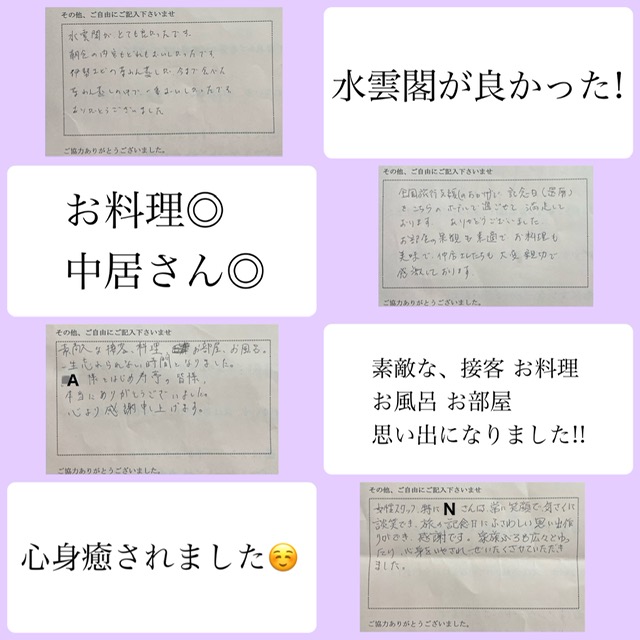 その他、ご自由にご記入下さいませ
水雲閣がとても良かったです。
朝色の内容もどれもおいしかったです
伊勢エビの茶わん蒸しは、今まで食べた
茶わん蒸しの中で一番おいしかったです
ありがとうございました
ご協力ありがとうございました。
水雲閣が良かった!
お料理◎
中居さん◎
その他、ご自由にご記入下さいませ
全国旅行支援のおかげで、記念日(還暦)
をこちらのホテルで過ごせて満足して
おります ありがとうございました
お部屋の景観も素適でお料理も
美味で、仲居さんたちも大変親切で
感激しております。
ご協力ありがとうございました。
その他、ご自由にご記入下さいませ
素敵な接客、料理、お部屋、お風呂。
一生忘れられない時間となりました。
A 様をはじめ の皆様、
本当にありがとうございました。
心より感謝申し上げます。
ご協力ありがとうございました。
素敵な、接客 お料理
お風呂 お部屋
思い出になりました!!
心身癒されました☺️
その他、ご自由にご記入下さいませ
女性スタッフ、特にNさんは、常に笑顔で、気さくに
談笑でき、旅の記念日にふさわしい思い出作
りができ、感謝です。家族ぶろも広々とゆっ
たり、心身をいやされ
ました。
ご協力ありがとうございました。